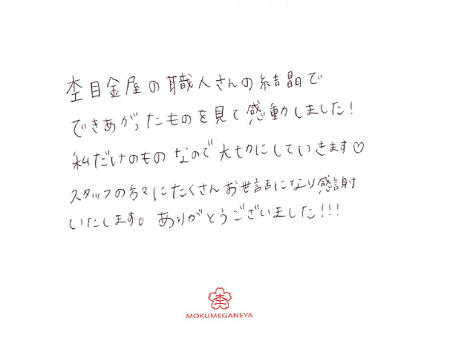 杢目金屋の職人さんの結晶で
できあがったものを見て感動しました!
私だけのものなので大切にしていきます♡
スタッフの方々にたくさんお世話になり感謝
いたします。ありがとうございました!!!
杢
MOKUMEGANEYA